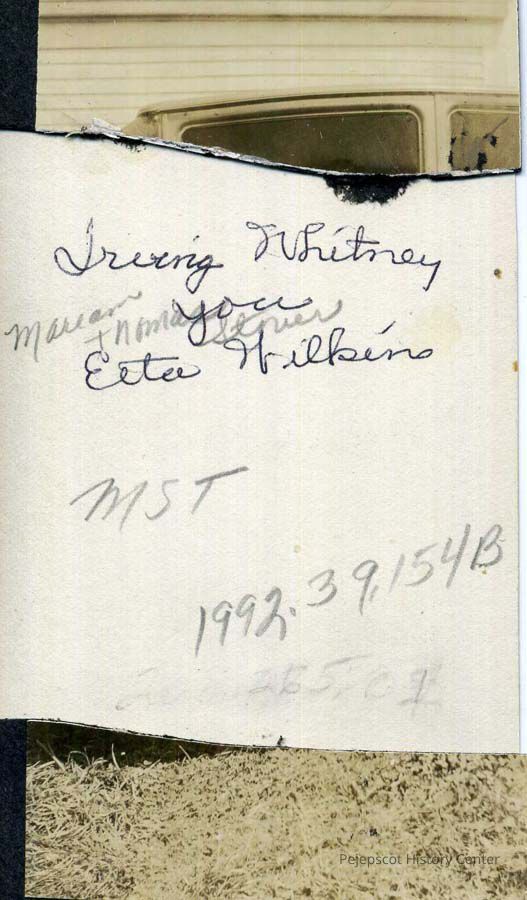 Irving Whitney
you
Mariam Thomas Stover
Etta Wilkins
MST
1992.39.154B
Pejepscot History Center